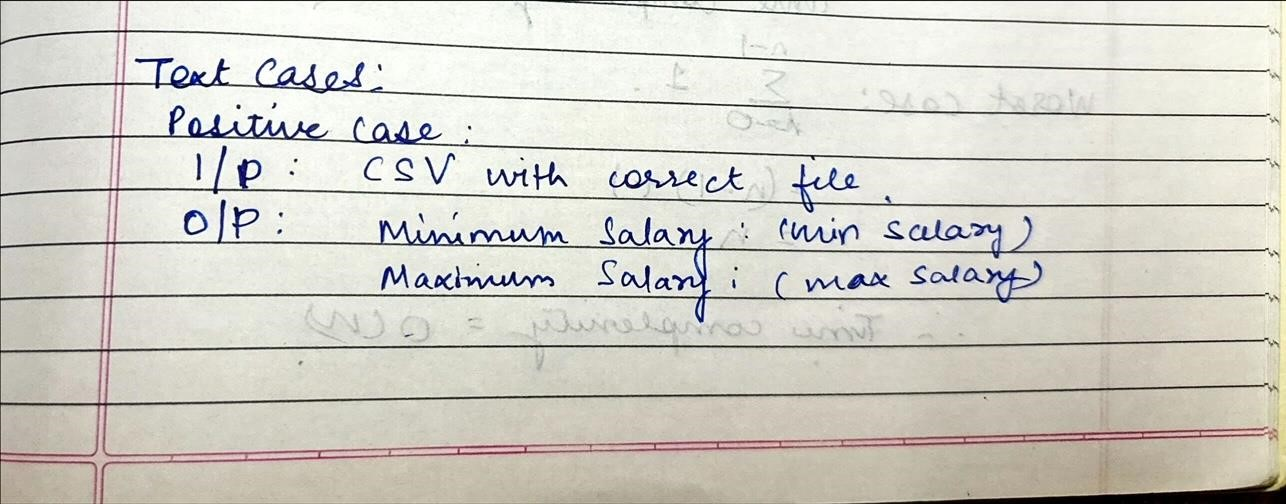 Text Cases:
Positive case :
I/P : CSV with correct file.
O/P : Minimum Salary : (min salary)
Maximum Salary : (max salary)